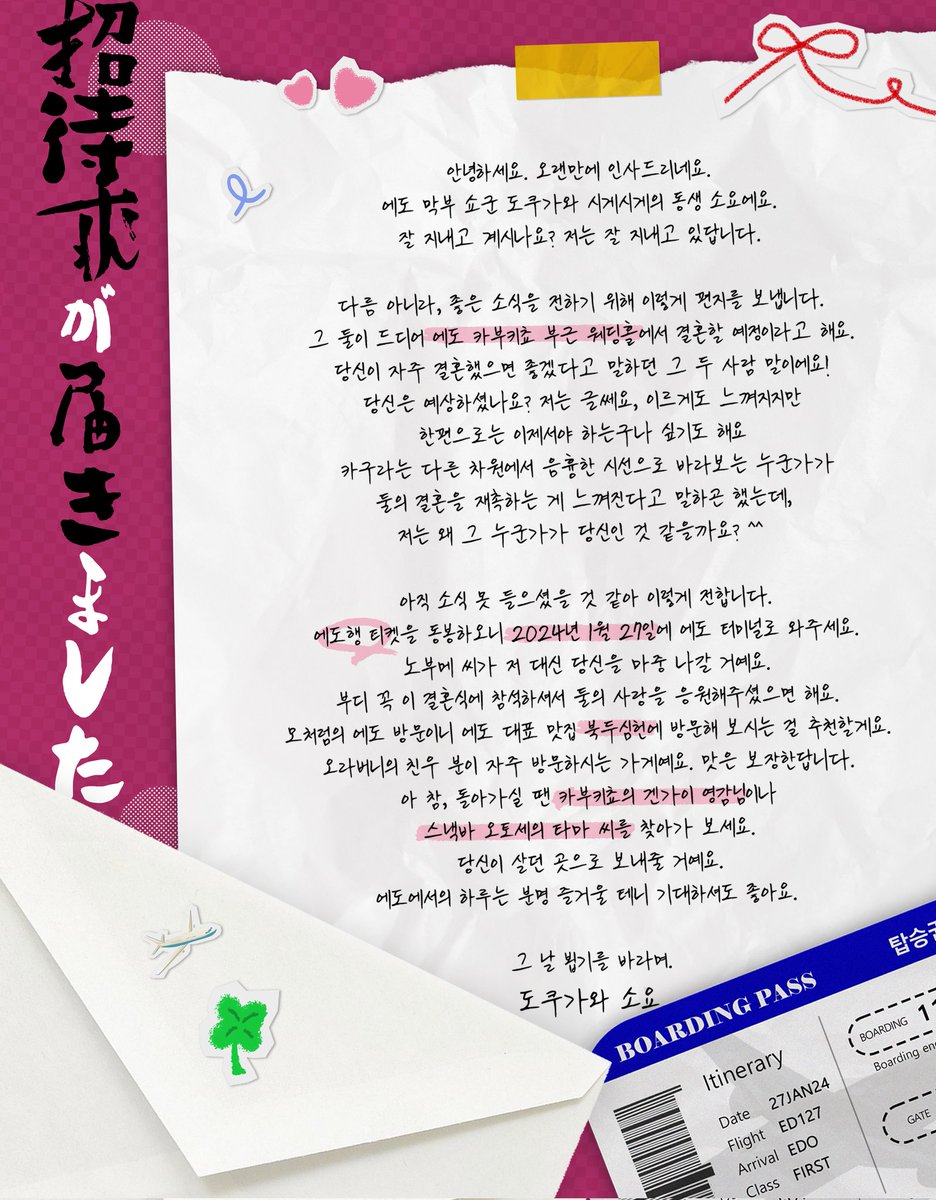 招待状が届きました
안녕하세요. 오랜만에 인사드리네요.
에도 막부 쇼군 도쿠가와 시게시게의 동생 소요에요.
잘 지내고 계시나요? 저는 잘 지내고 있답니다.
다름 아니라, 좋은 소식을 전하기 위해 이렇게 편지를 보냅니다.
그 둘이 드디어 에도 카부키쵸 부근 웨딩홀에서 결혼할 예정이라고 해요.
당신이 자주 결혼했으면 좋겠다고 말하던 그 두 사람 말이에요!
당신은 예상하셨나요? 저는 글쎄요, 이르게도 느껴지지만
한편으로는 이제서야 하는구나 싶기도 해요
카구라는 다른 차원에서 음흉한 시선으로 바라보는 누군가가
둘의 결혼을 재촉하는 게 느껴진다고 말하곤 했는데,
저는 왜 그 누군가가 당신인 것 같을까요? ^^
아직 소식 못 들으셨을 것 같아 이렇게 전합니다.
에도행 티켓을 동봉하오니 2024년 1월 27일에 에도 터미널로 와주세요.
노부메 씨가 저 대신 당신을 마중 나갈 거예요.
부디 꼭 이 결혼식에 참석하셔서 둘의 사랑을 응원해주셨으면 해요.
모처럼의 에도 방문이니 에도 대표 맛집 북두심헌에 방문해 보시는 걸 추천할게요.
오라버니의 친우 분이 자주 방문하시는 가게예요. 맛은 보장한답니다.
아 참, 돌아가실 땐 카부키쵸의 겐가이 영감님이나
스낵바 오토세의 타마 씨를 찾아가 보세요.
당신이 살던 곳으로 보내줄 거예요.
에도에서의 하루는 분명 즐거울 테니 기대하셔도 좋아요.
그 날 뵙기를 바라며.
도쿠가와 소요
탑승권
BOARDING PASS
Itinerary
Date 27JAN24
Flight ED127
Arrival EDO
Class FIRST
BOARDING 1
Boarding en
GATE